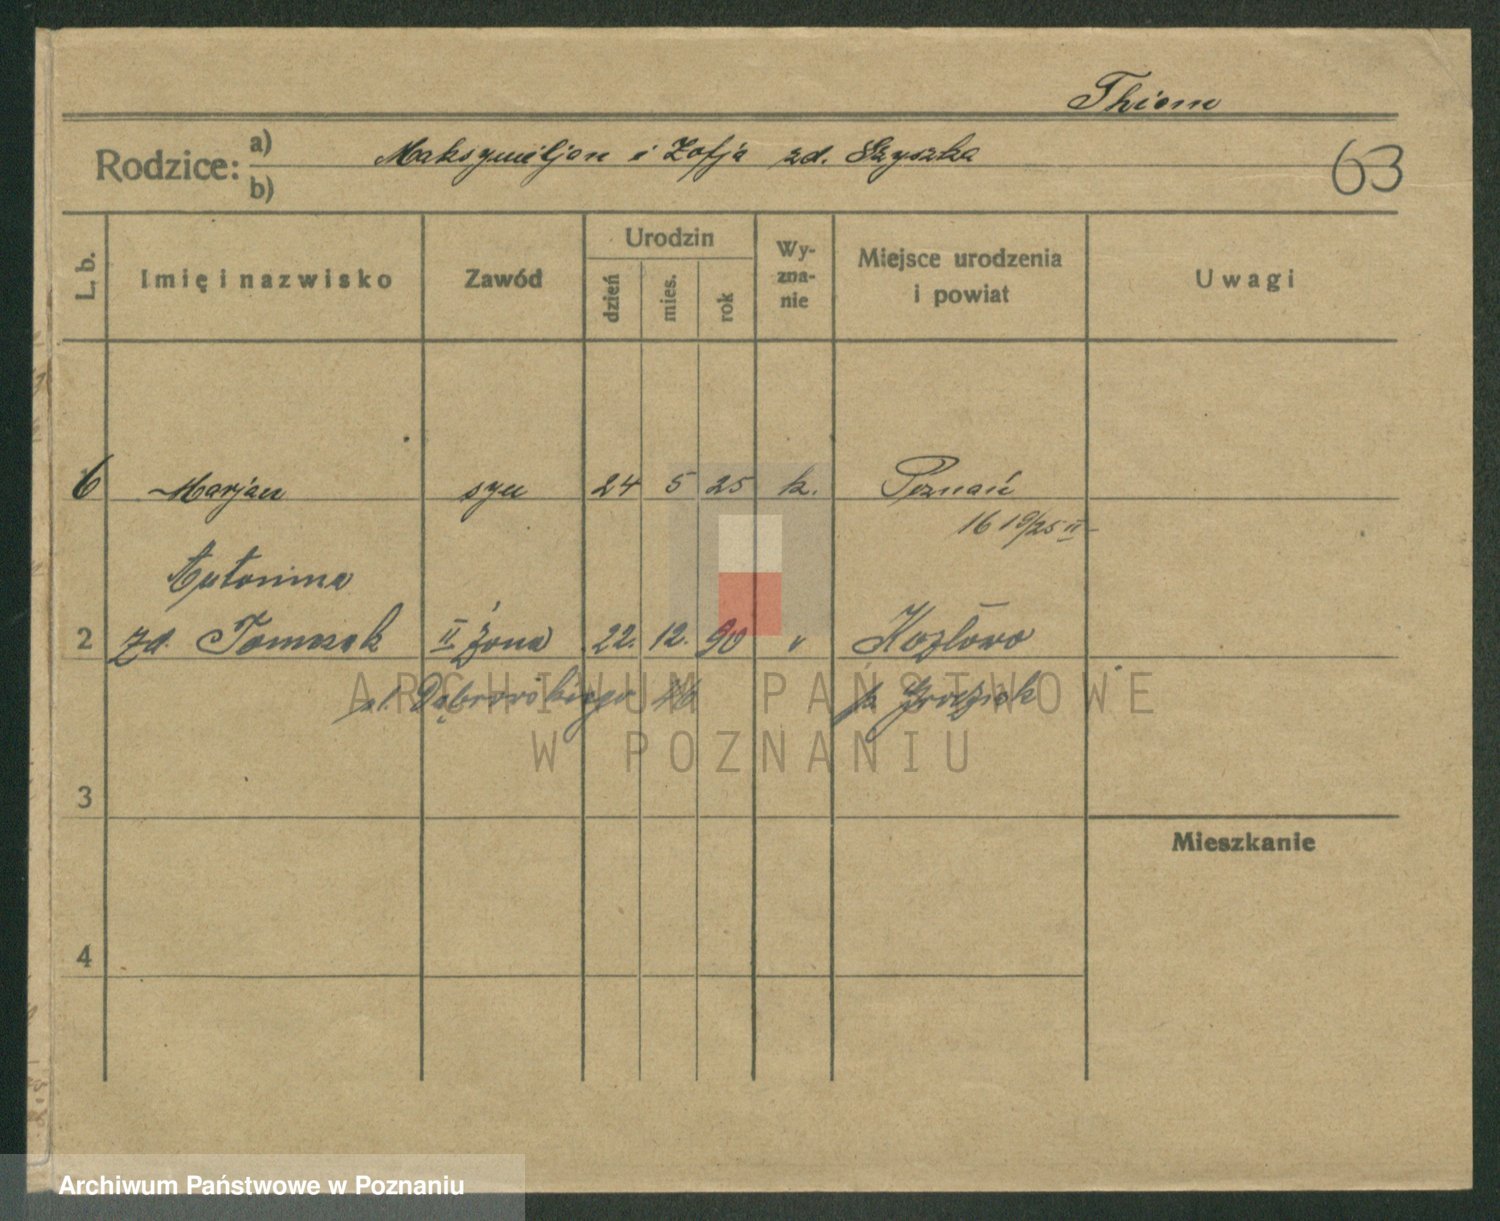 Thiem
Rodzice: a) Maksymiljan i Zofja zd. Szyszka
b)
63
L. b. Imię i nazwisko Zawód Urodzin dzień mies. rok Wy-zna-nie Miejsce urodzenia i powiat Uwagi
6 Marjan syn 24 5 25 k. Poznań
16 19/25 II
Antonina
2 zd. Tomczak II żona 22. 12. 90 " Kozłowo
pl. Dąbrowskiego p. Grodzisk
ARCHIWUM PAŃSTWOWE
W POZNANIU
3
Mieszkanie
4
Archiwum Państwowe w Poznaniu